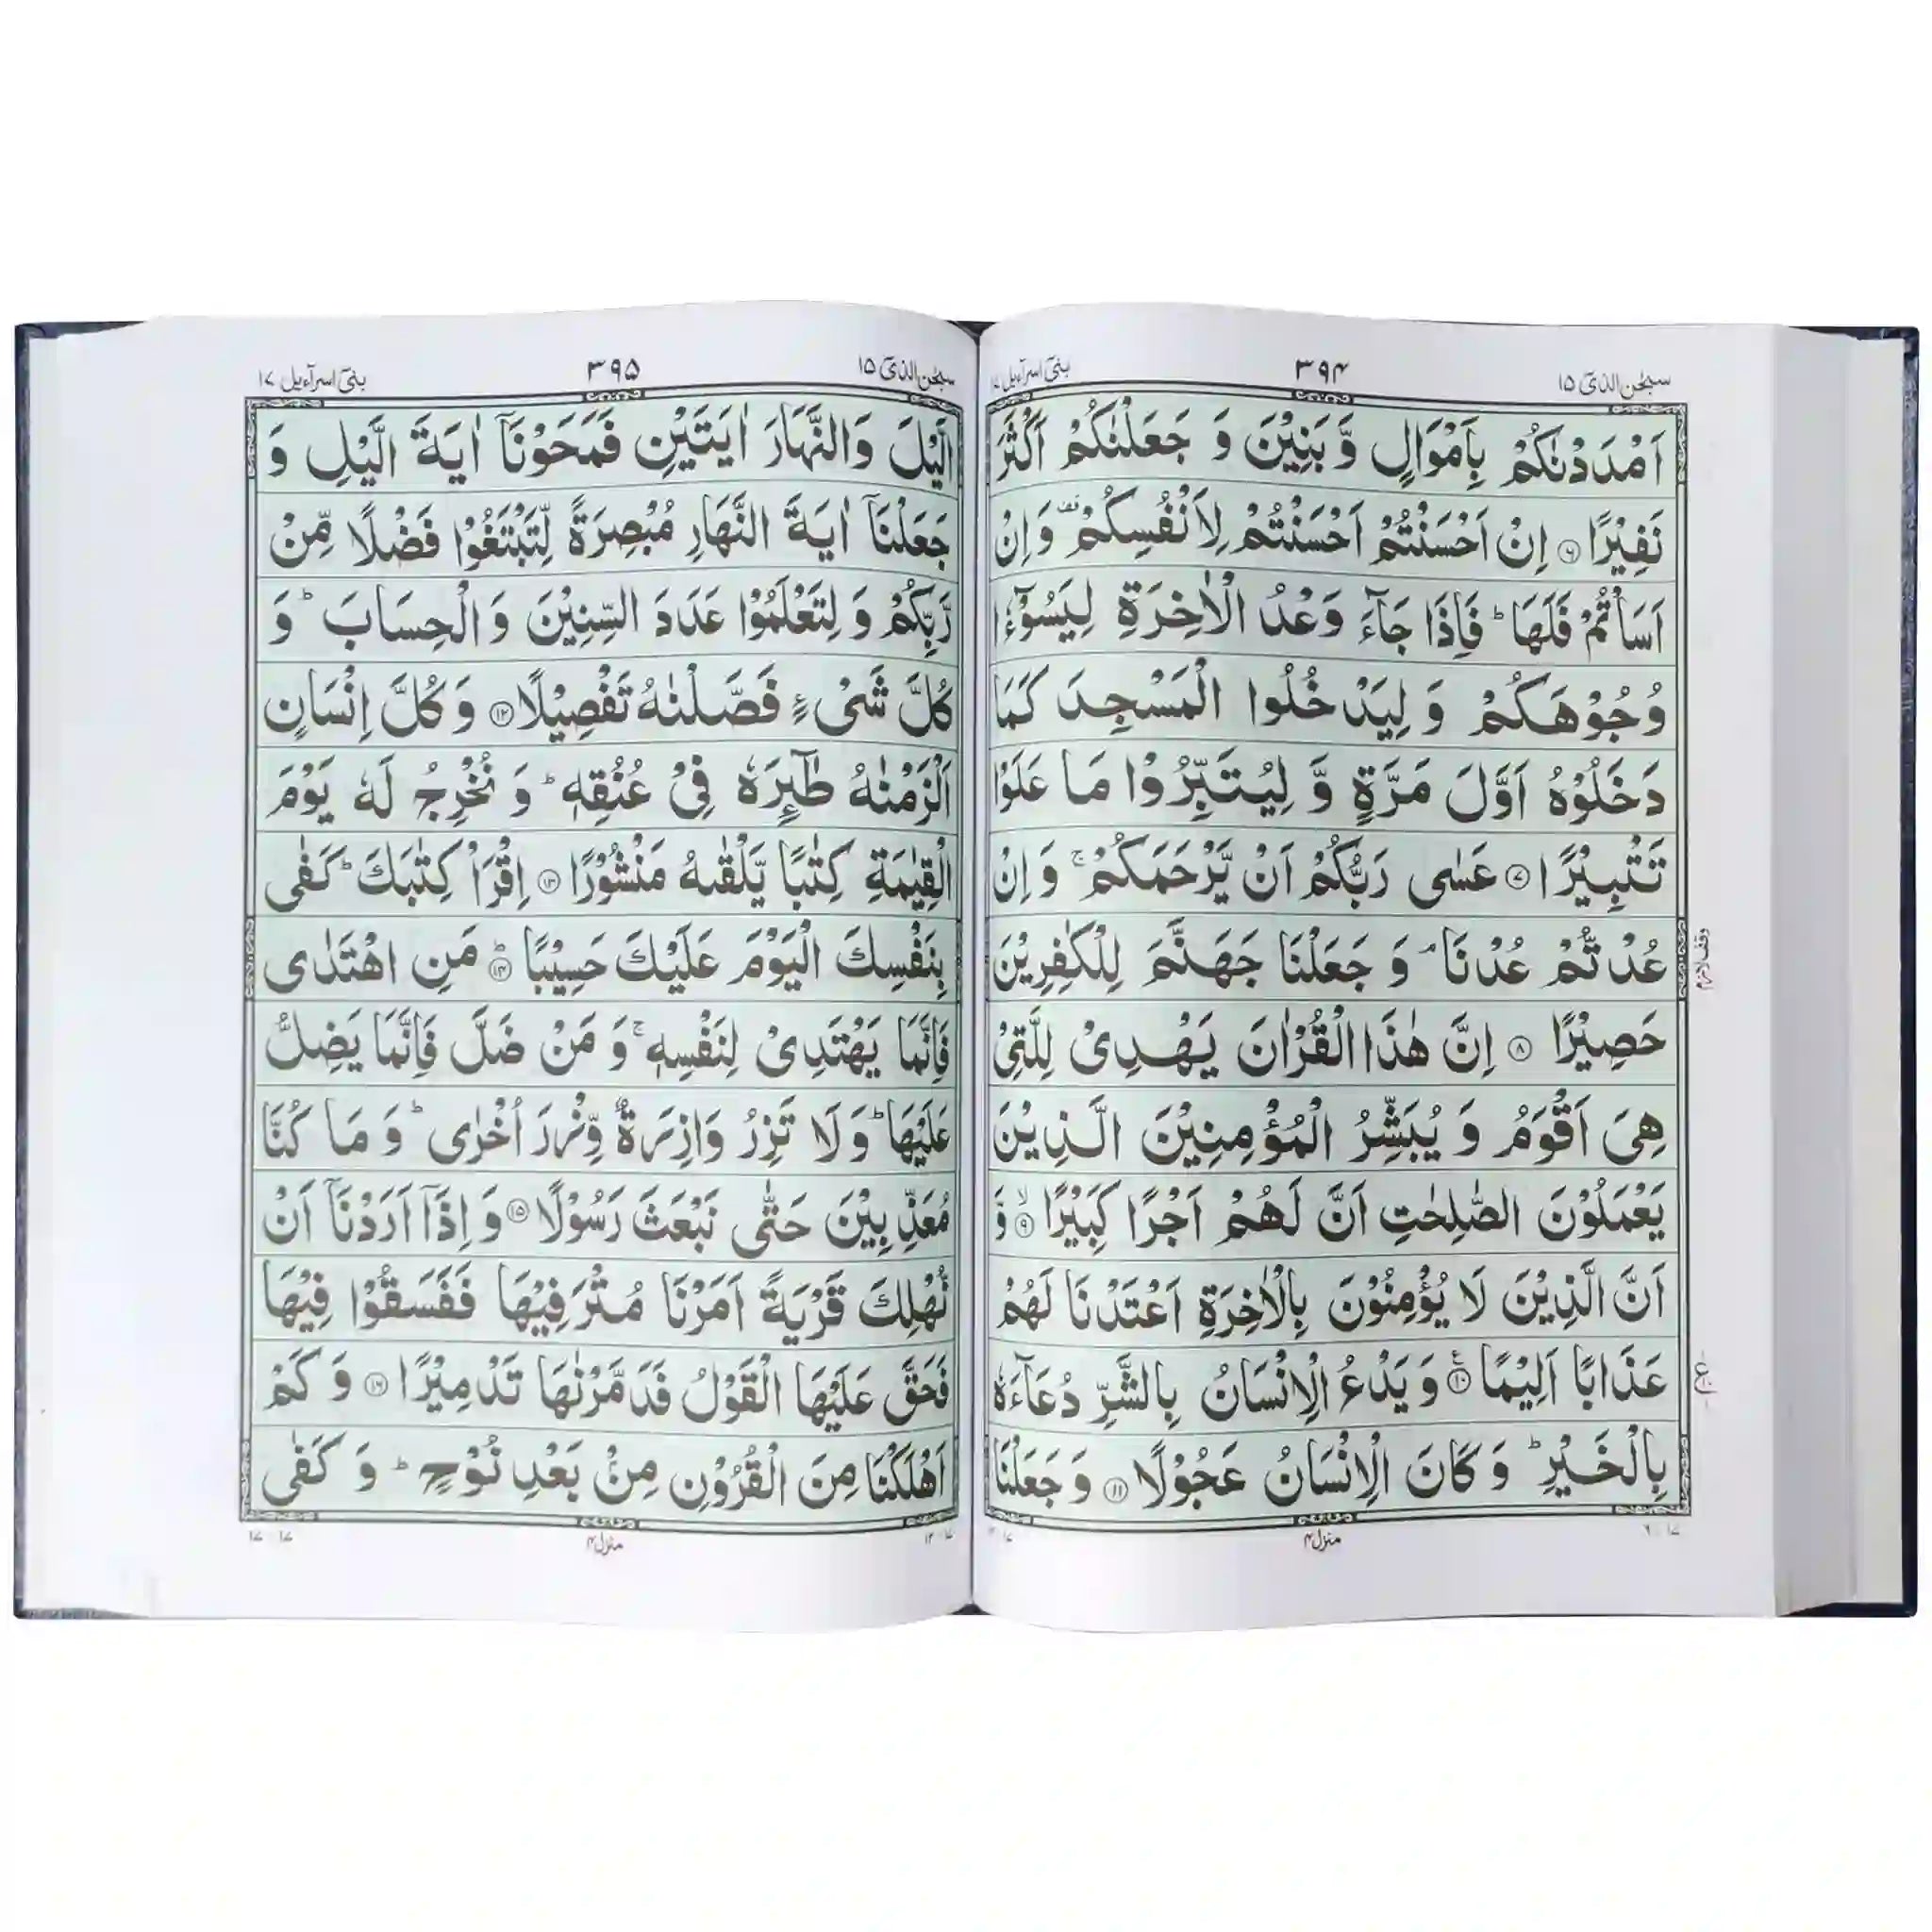 سبحٰن الذیٓ ١٥
٣٩٤
بنیٓ اسرآءیل ١٧
اَمْدَدْنٰكُمْ بِاَمْوَالٍ وَّ بَنِیْنَ وَ جَعَلْنٰكُمْ اَكْثَرَ
نَفِیْرًا ۝٦ اِنْ اَحْسَنْتُمْ اَحْسَنْتُمْ لِاَنْفُسِكُمْ ۫ وَ اِنْ
اَسَاْتُمْ فَلَهَا ؕ فَاِذَا جَآءَ وَعْدُ الْاٰخِرَةِ لِیَسُوْٓءٗا
وُجُوْهَكُمْ وَ لِیَدْخُلُوا الْمَسْجِدَ كَمَا
دَخَلُوْهُ اَوَّلَ مَرَّةٍ وَّ لِیُتَبِّرُوْا مَا عَلَوْا
تَتْبِیْرًا ۝٧ عَسٰی رَبُّكُمْ اَنْ یَّرْحَمَكُمْ ۚ وَ اِنْ
عُدْتُّمْ عُدْنَا ۘ وَ جَعَلْنَا جَهَنَّمَ لِلْكٰفِرِیْنَ
حَصِیْرًا ۝٨ اِنَّ هٰذَا الْقُرْاٰنَ یَهْدِیْ لِلَّتِیْ
هِیَ اَقْوَمُ وَ یُبَشِّرُ الْمُؤْمِنِیْنَ الَّذِیْنَ
یَعْمَلُوْنَ الصّٰلِحٰتِ اَنَّ لَهُمْ اَجْرًا كَبِیْرًا ۝٩ۙ وَّ
اَنَّ الَّذِیْنَ لَا یُؤْمِنُوْنَ بِالْاٰخِرَةِ اَعْتَدْنَا لَهُمْ
عَذَابًا اَلِیْمًا ۝١٠۠ وَ یَدْعُ الْاِنْسَانُ بِالشَّرِّ دُعَآءَهٗ
بِالْخَیْرِ ؕ وَ كَانَ الْاِنْسَانُ عَجُوْلًا ۝١١ وَ جَعَلْنَا
منزل ٤
سبحٰن الذیٓ ١٥
٣٩٥
بنیٓ اسرآءیل ١٧
الَّیْلَ وَ النَّهَارَ اٰیَتَیْنِ فَمَحَوْنَاۤ اٰیَةَ الَّیْلِ وَ
جَعَلْنَاۤ اٰیَةَ النَّهَارِ مُبْصِرَةً لِّتَبْتَغُوْا فَضْلًا مِّنْ
رَّبِّكُمْ وَ لِتَعْلَمُوْا عَدَدَ السِّنِیْنَ وَ الْحِسَابَ ؕ وَ
كُلَّ شَیْءٍ فَصَّلْنٰهُ تَفْصِیْلًا ۝١٢ وَ كُلَّ اِنْسَانٍ
اَلْزَمْنٰهُ طٰٓئِرَهٗ فِیْ عُنُقِهٖ ؕ وَ نُخْرِجُ لَهٗ یَوْمَ
الْقِیٰمَةِ كِتٰبًا یَّلْقٰىهُ مَنْشُوْرًا ۝١٣ اِقْرَاْ كِتٰبَكَ ؕ كَفٰی
بِنَفْسِكَ الْیَوْمَ عَلَیْكَ حَسِیْبًا ۝١٤ؕ مَنِ اهْتَدٰی
فَاِنَّمَا یَهْتَدِیْ لِنَفْسِهٖ ۚ وَ مَنْ ضَلَّ فَاِنَّمَا یَضِلُّ
عَلَیْهَا ؕ وَ لَا تَزِرُ وَازِرَةٌ وِّزْرَ اُخْرٰی ؕ وَ مَا كُنَّا
مُعَذِّبِیْنَ حَتّٰی نَبْعَثَ رَسُوْلًا ۝١٥ وَ اِذَاۤ اَرَدْنَاۤ اَنْ
نُّهْلِكَ قَرْیَةً اَمَرْنَا مُتْرَفِیْهَا فَفَسَقُوْا فِیْهَا
فَحَقَّ عَلَیْهَا الْقَوْلُ فَدَمَّرْنٰهَا تَدْمِیْرًا ۝١٦ وَ كَمْ
اَهْلَكْنَا مِنَ الْقُرُوْنِ مِنْۢ بَعْدِ نُوْحٍ ؕ وَ كَفٰی
منزل ٤